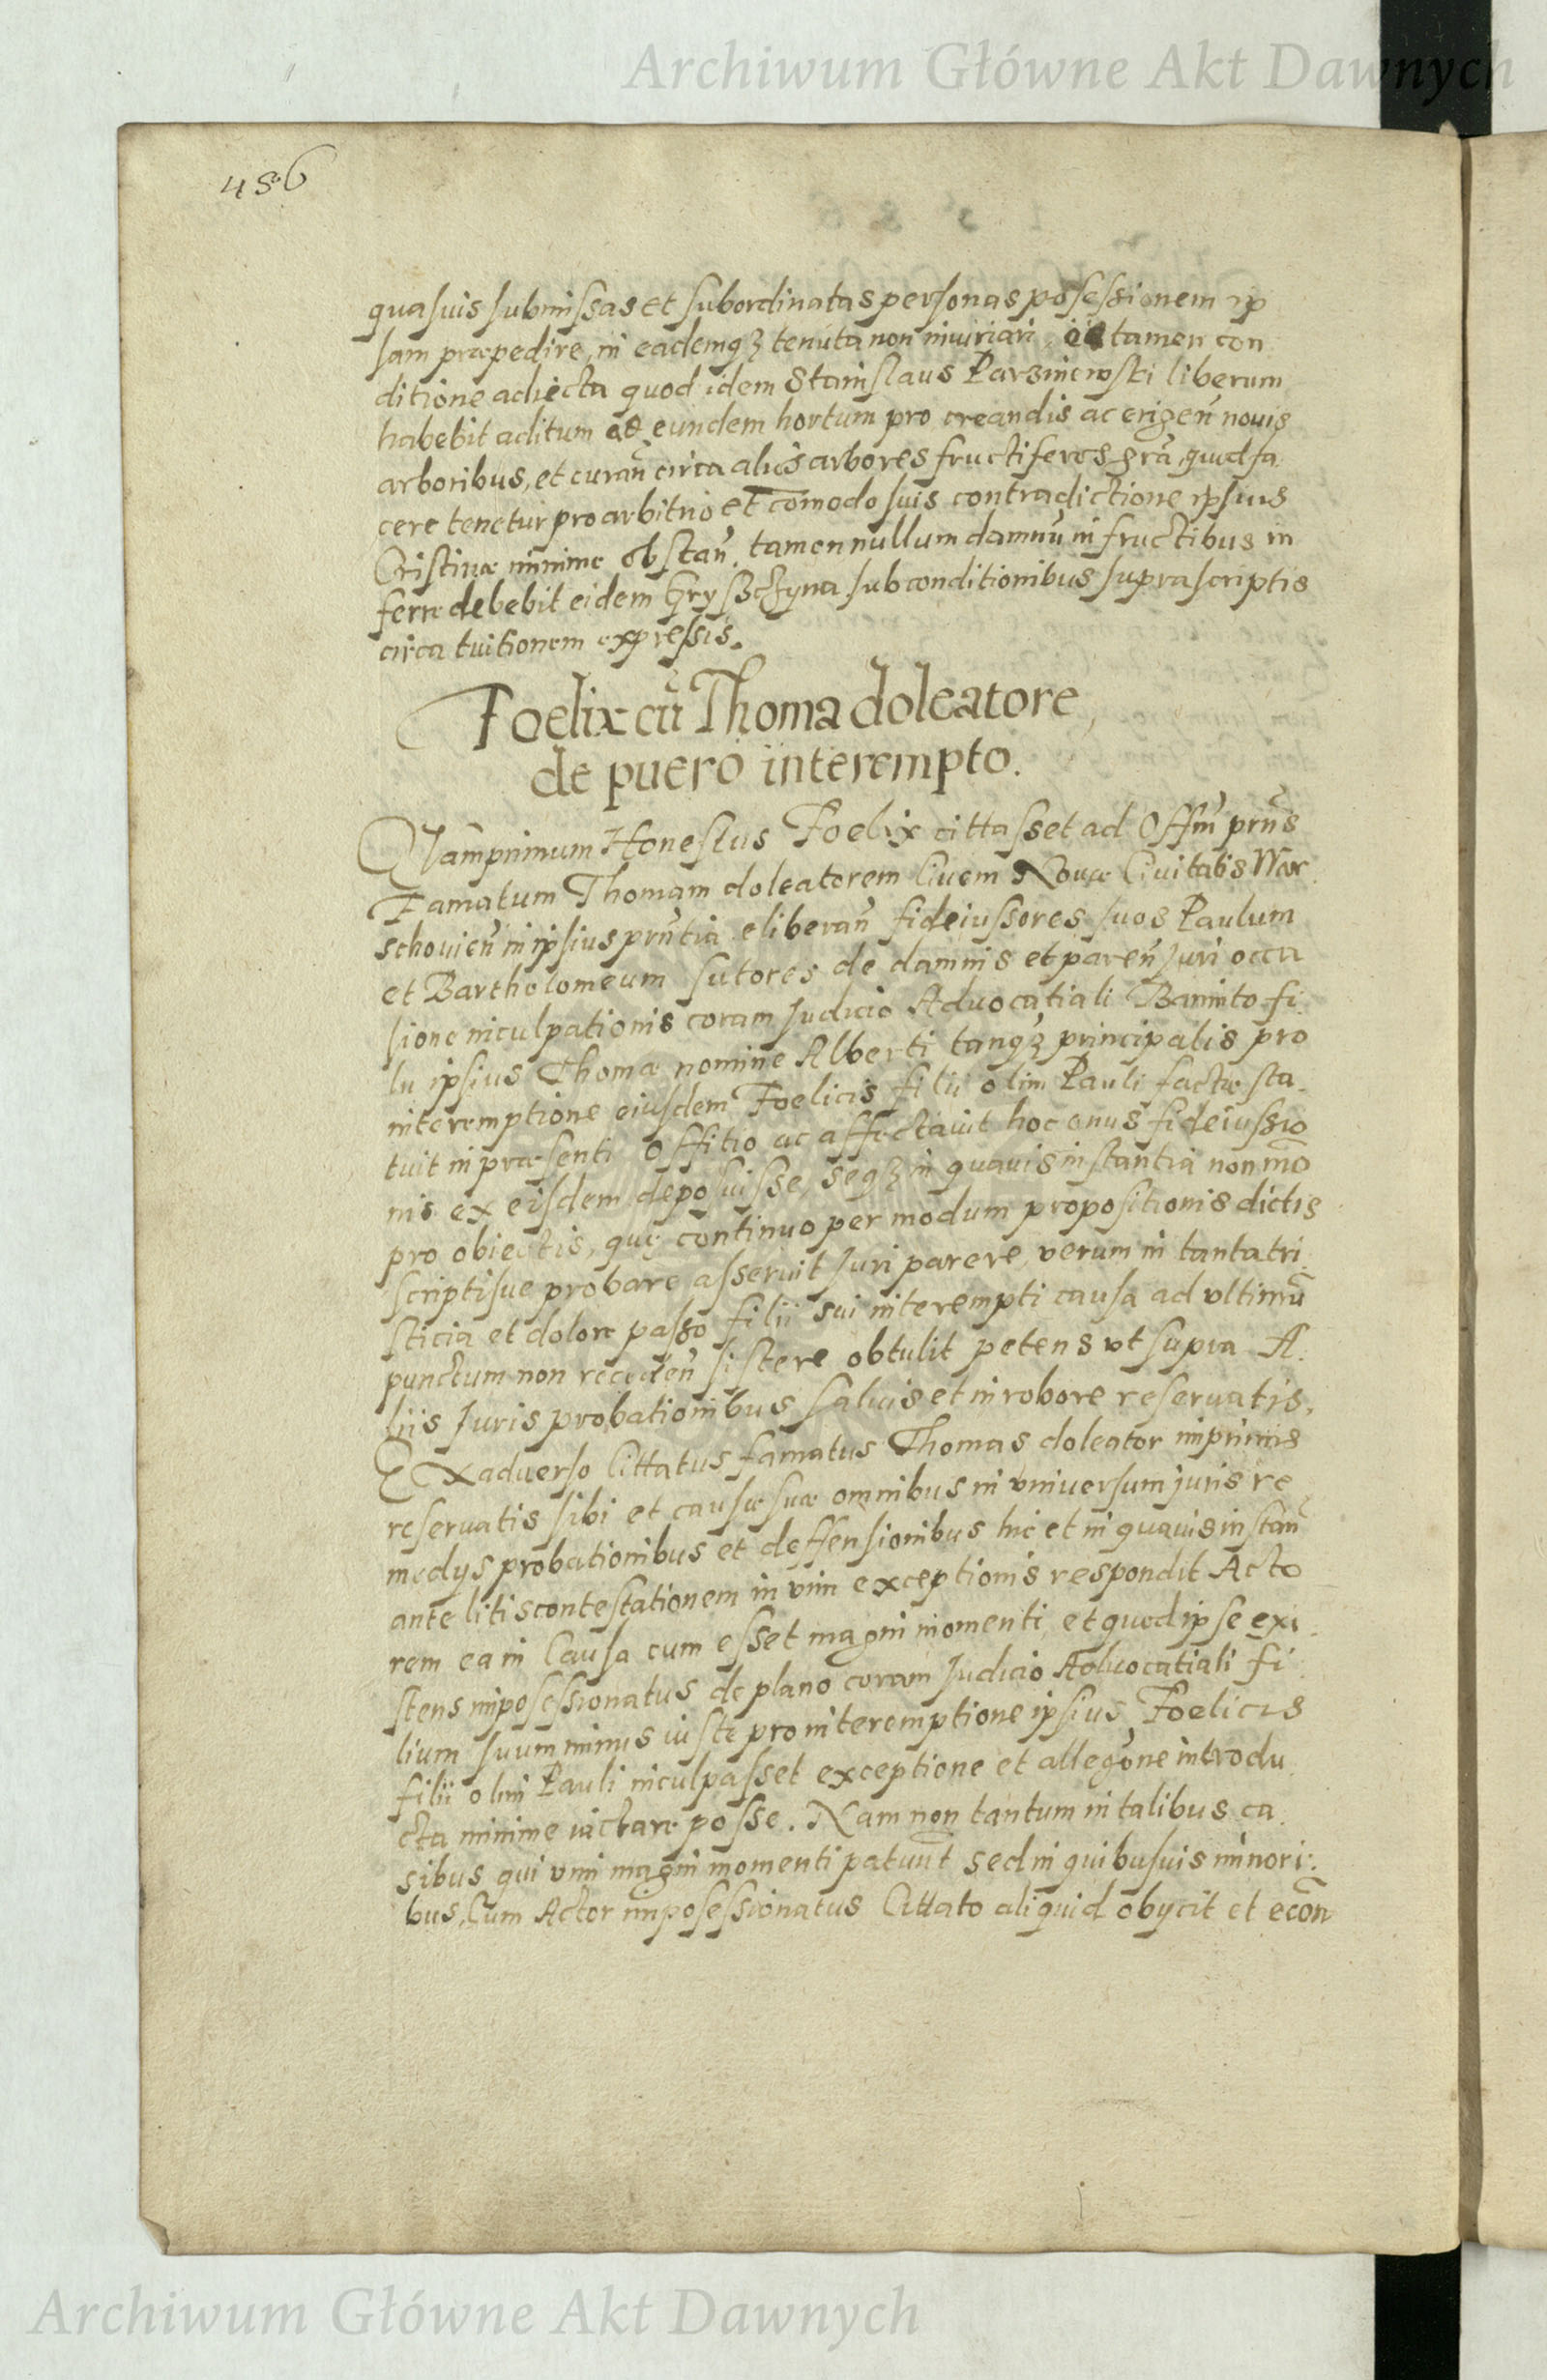 Archiwum Główne Akt Dawnych
486
quasuis submissas et subordinatas personas possessionem ip
sam præpedire, in eademqȝ tenuta non iniuriari, tamen con
ditione adiecta quod idem Stanislaus Parzniewski liberum
habebit aditum ad eundem hortum pro creandis ac erigeñ nouis
arboribus, et curañ circa alias arbores fructiferas gr̃a, quod fa
cere tenetur pro arbitrio et com̃odo suis contradictione ipsius
Cristinæ minime obstañ. tamen nullum damnũ in fructibus in
ferre debebit eidem Gryszczyna sub conditionibus suprascriptis
circa tuitionem expressis.
Foelix cũ Thoma doleatore,
de puero interempto.
Quamprimum Honestus Foelix cittasset ad Offm̃ pñs
Famatum Thomam doleatorem Ciuem Nouæ Ciuitatis War
schouieñ in ipsius pñtia eliberañ fideiussores suos Paulum
et Bartholomeum sutores de damnis et pareñ Juri occa
sione inculpationis coram Judicio Aduocatiali Bannito fi
lii ipsius Thomæ nomine Alberti tanqȝ principalis pro
interemptione eiusdem Foelicis filii olim Pauli factæ sta
tuit in præsenti Offitio ac affectauit hoc onus fideiussio
nis ex eisdem deposuisse, seqȝ in quauis instantia non m̃o
pro obiectis, quę continuo per modum propositionis dictis
scriptisue probare asseruit Juri parere, verum in tanta tri
sticia et dolore passo filii sui interempti causa ad vltimũ
punctum non recedeñ sistere obtulit petens vt supra A
liis Juris probationibus saluis et in robore reseruatis.
Exaduerso Cittatus famatus Thomas doleator imprimis
reseruatis sibi et causæ suæ omnibus in vniuersum juris re
medys probationibus et deffensionibus hic et in quauis instañ
ante litiscontestationem in vim exceptionis respondit Acto
rem ea in Causa cum esset magni momenti, et quod ipse exi
stens impossessionatus de plano coram Judicio Aduocatiali fi
lium suum minus iuste pro interemptione ipsius Foelicis
filii olim Pauli inculpasset exceptione et alleg̃one introdu
cta minime iactare posse. Nam non tantum in talibus ca
sibus qui vim magni momenti patiunt sed in quibusuis minori
bus, Cum Actor impossessionatus Cittato aliquid obycit et ecoñ
Archiwum Główne Akt Dawnych